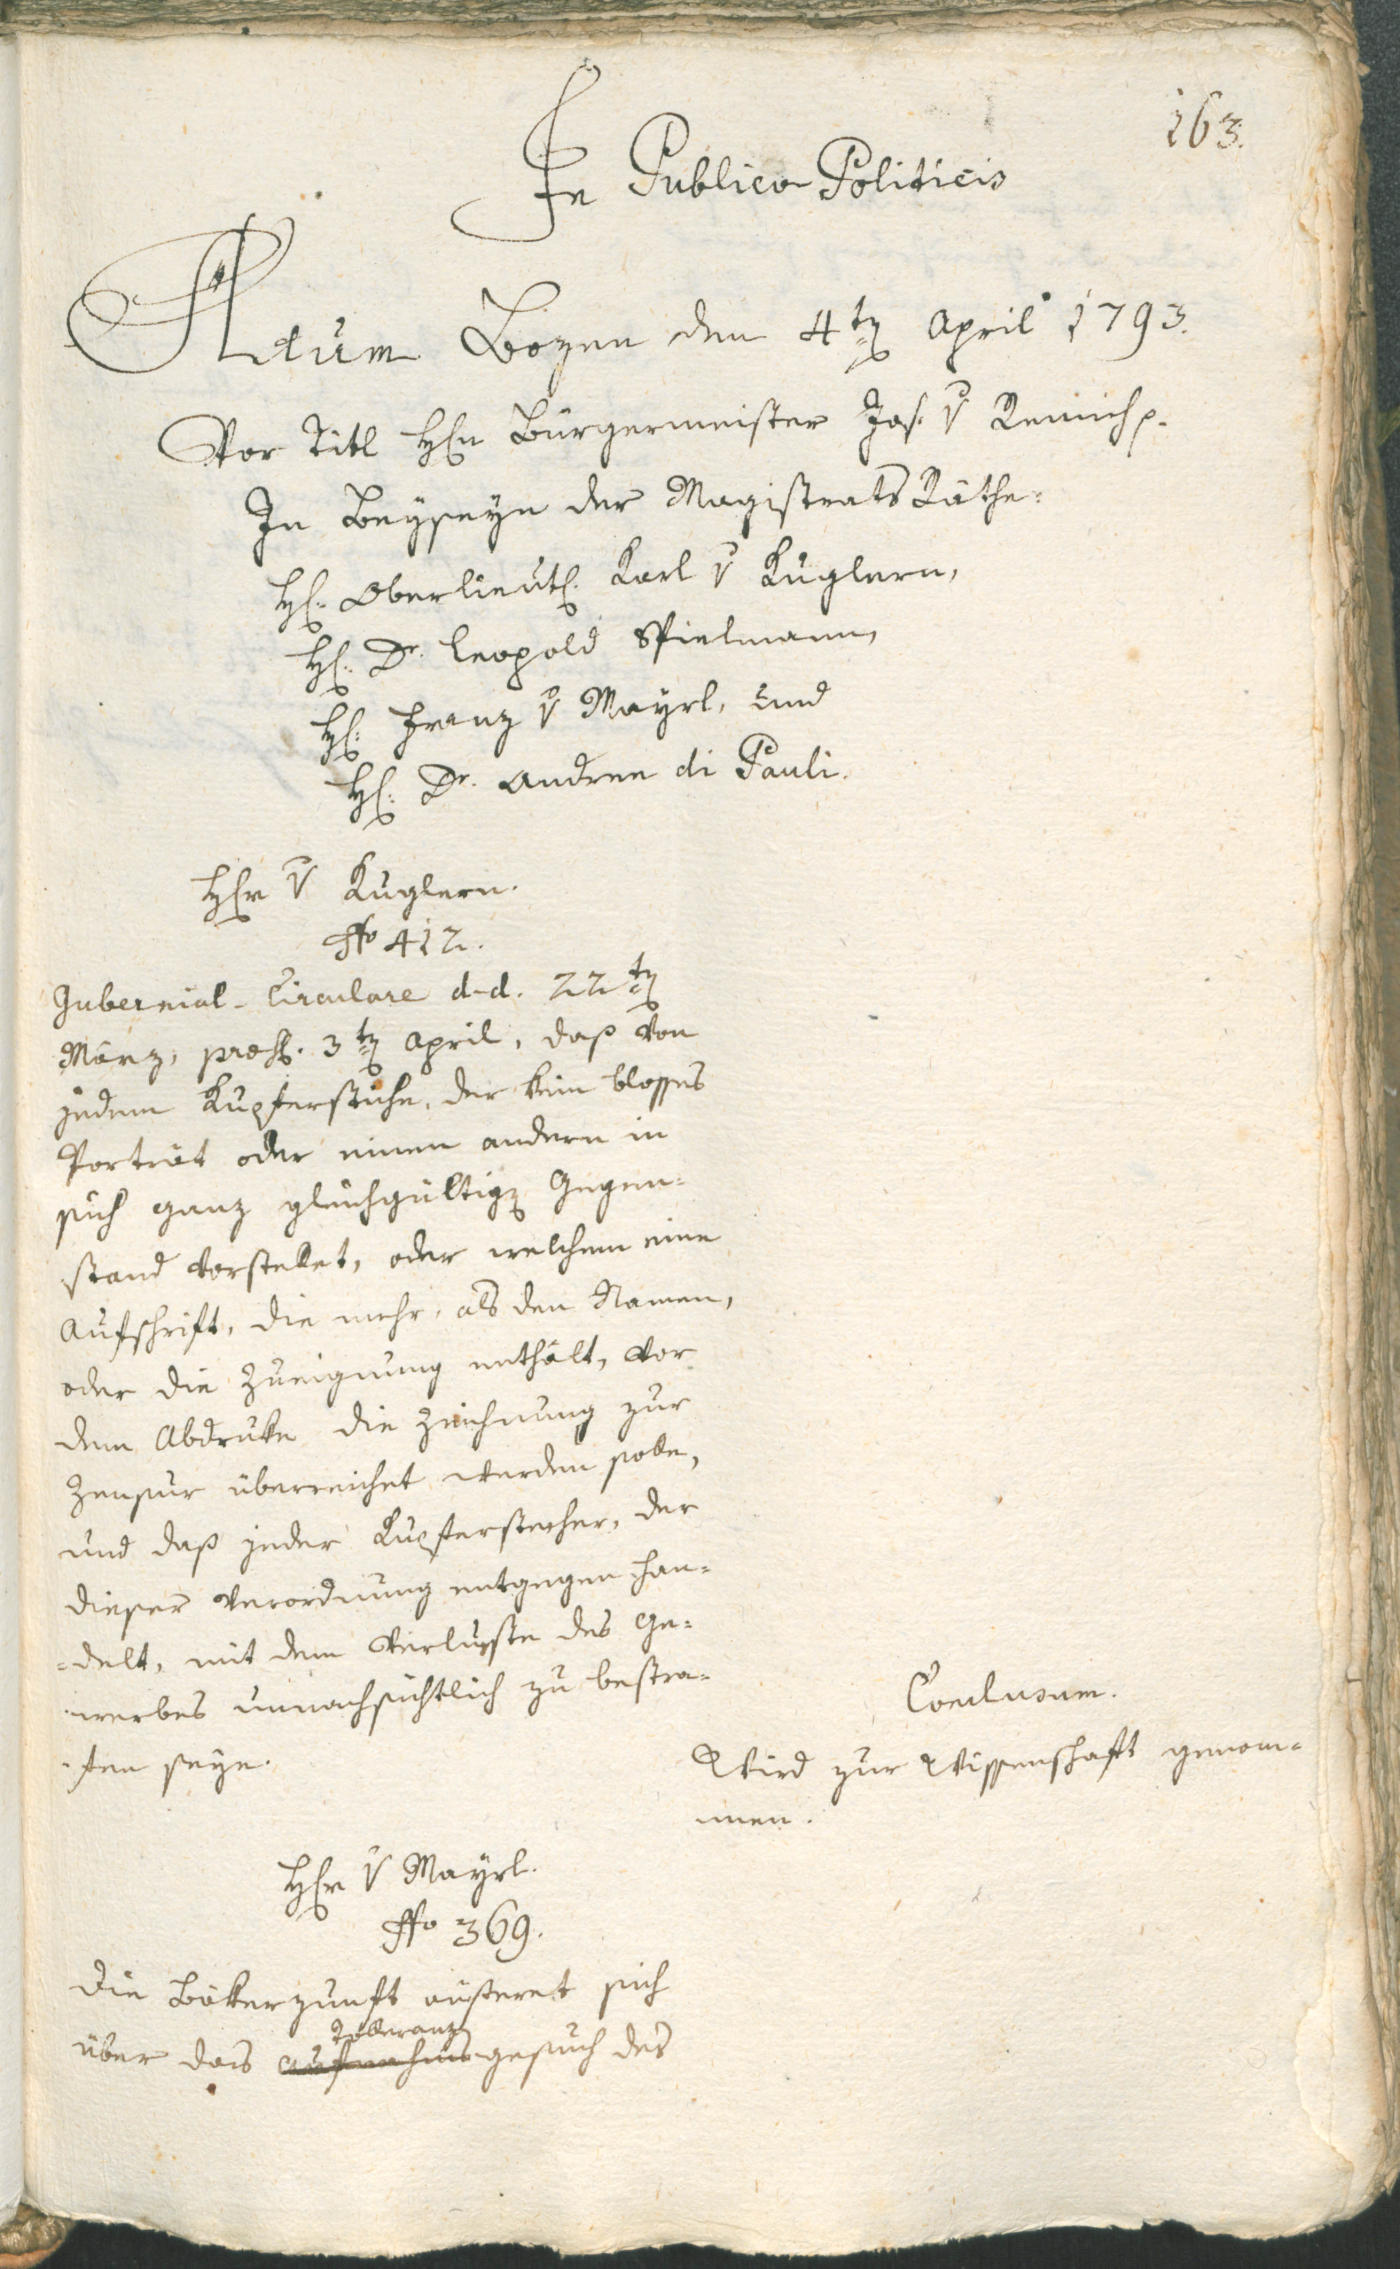 163.
In Publico Politicis
Actum Bozen den 4ten April 1793.
Vor Titl Hℓn Bürgermeister Jos. v Remich p.
In Beyseyn der Magistrats Räthe:
H. Oberlieut. Karl v Kuglern,
H. Dr. Leopold Spielmann,
H. Franz v Mayrl, und
H. Dr. Andree di Pauli.
Hr v Kuglern.
No 412.
Gubernial-Circulare d-d. 22ten
März, praes. 3ten April, daß von
jedem Kupferstiche, der kein blosses
Porträt oder einen andern in
sich ganz gleichgültigen Gegen=
stand vorstellet, oder welchem eine
Aufschrift, die mehr, als den Namen,
oder die Zueignung enthält, vor
dem Abdruke die Zeichnung zur
Zensur überreichet werden solle,
und daß jeder Kupferstecher, der
dieser Verordnung entgegen han=
=delt, mit dem Verluste des Ge=
werbes unnachsichtlich zu bestra=
=fen seye.
Conclusum.
Wird zur Wissenschaft genom=
men.
Hr v Mayrl.
No 369.
Die Bäkerzunft äusseret sich
Tolleranz
über das Aufnahmsgesuch des